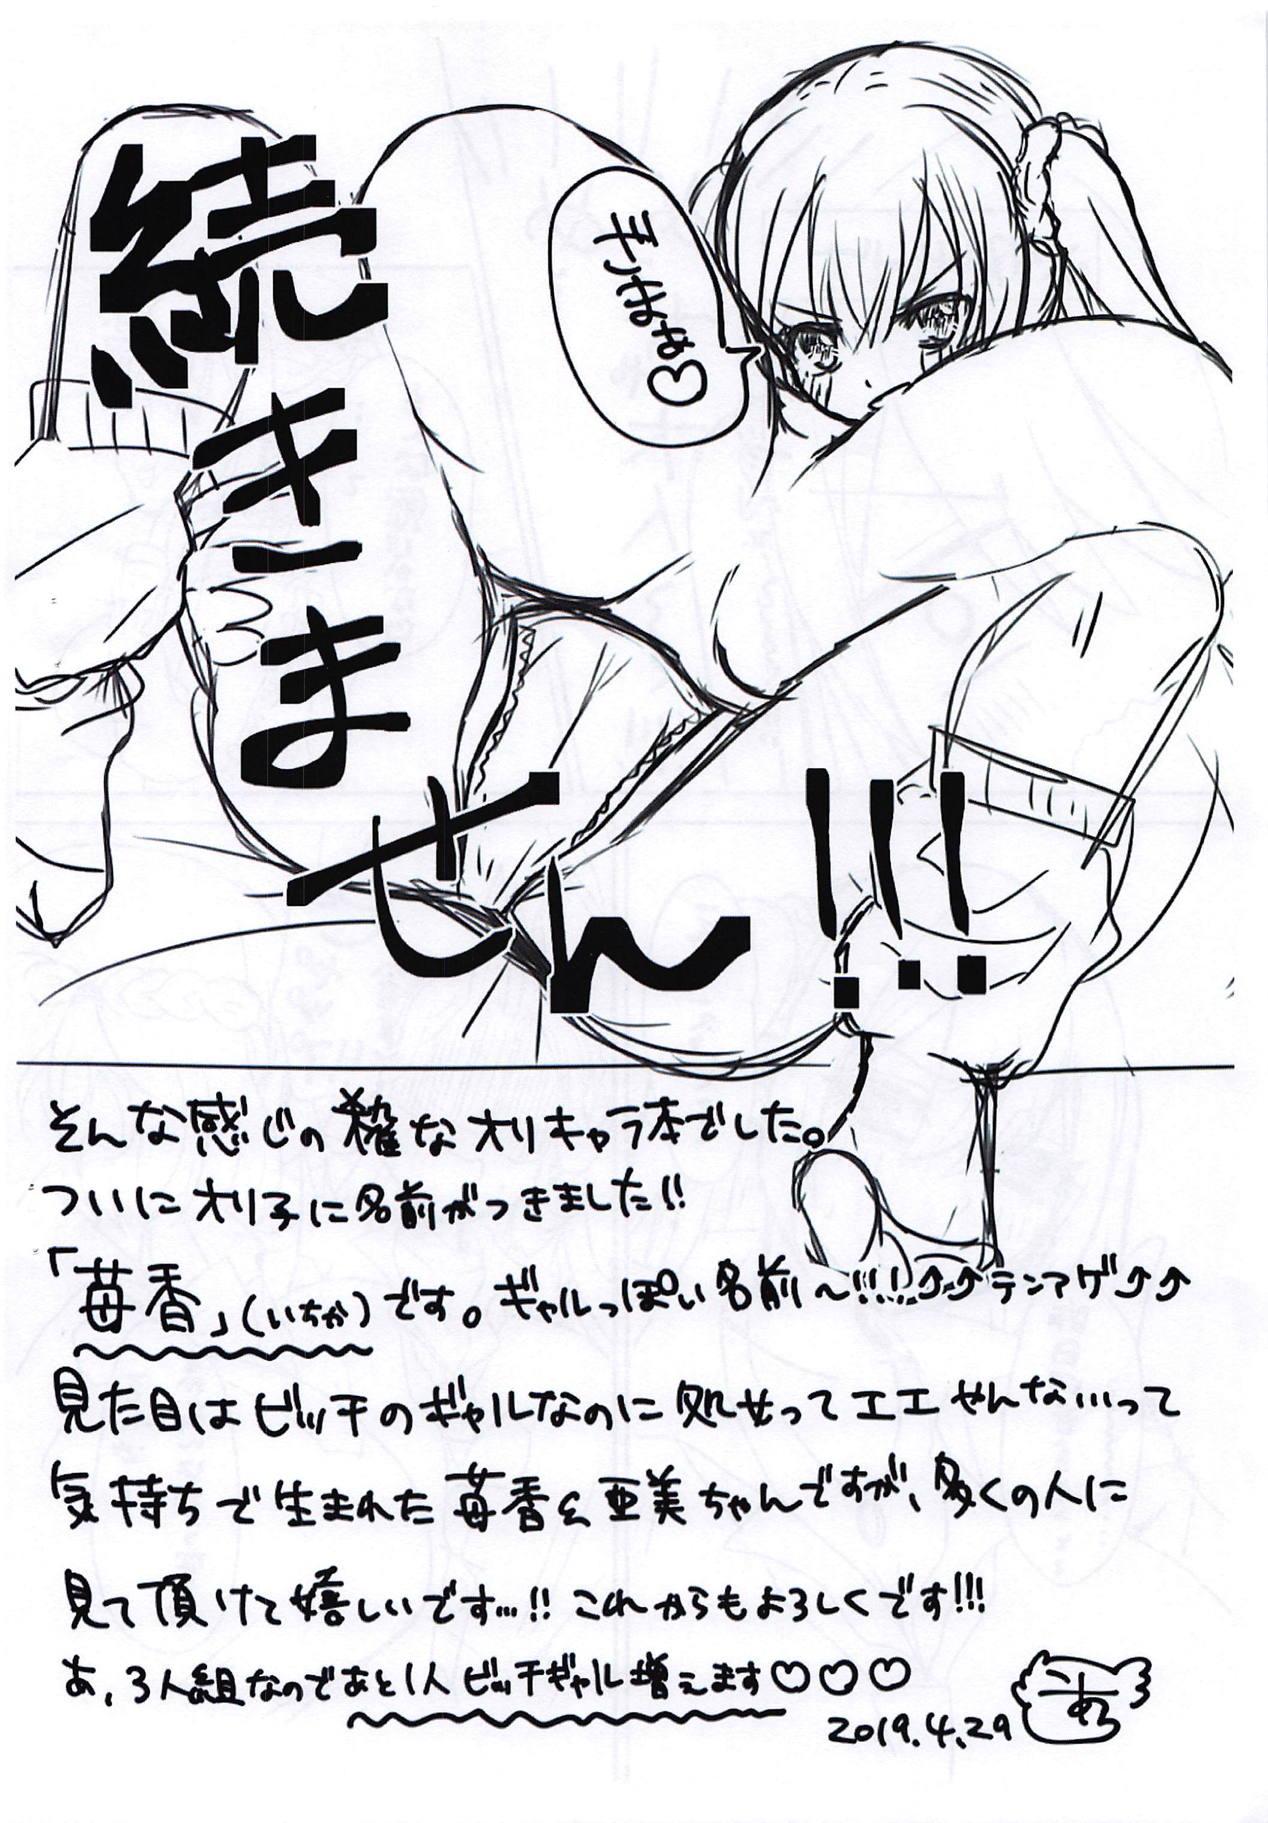 続きません!!!
ざまぁ♡
そんな感じの雑なオリキャラ本でした。
ついにオリ子に名前がつきました!!
「苺香」(いちか)です。ギャルっぽい名前〜!!!⤴⤴テンアゲ⤴⤴
見た目はビッチのギャルなのに処女ってエエやんな…って
気持ちで生まれた苺香&亜美ちゃんですが、多くの人に
見て頂けて嬉しいです…!! これからもよろしくです!!!
あ、3人組なのであと1人ビッチギャル増えます♡♡♡
2019.4.29